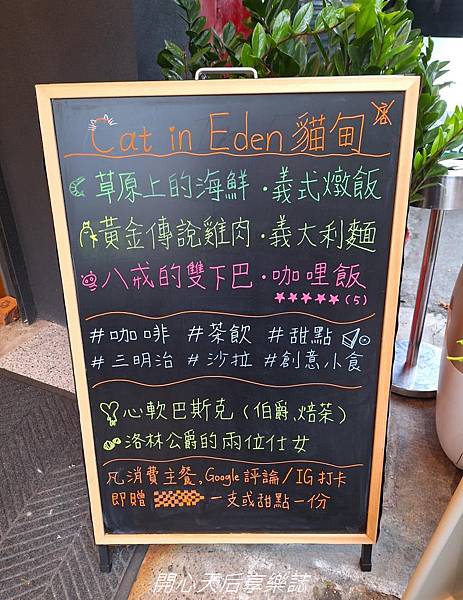 Cat in Eden 貓甸
草原上的海鮮·義式燉飯
黃金傳說雞肉·義大利麵
八戒的雙下巴·咖哩飯
★★★★★(5)
#咖啡 #茶飲 #甜點
#三明治 #沙拉 #創意小食
心軟巴斯克(伯爵,焙茶)
洛林公爵的兩位仕女
凡消費主餐,Google評論/IG打卡
即贈 一支或甜點一份
開心天后享樂誌